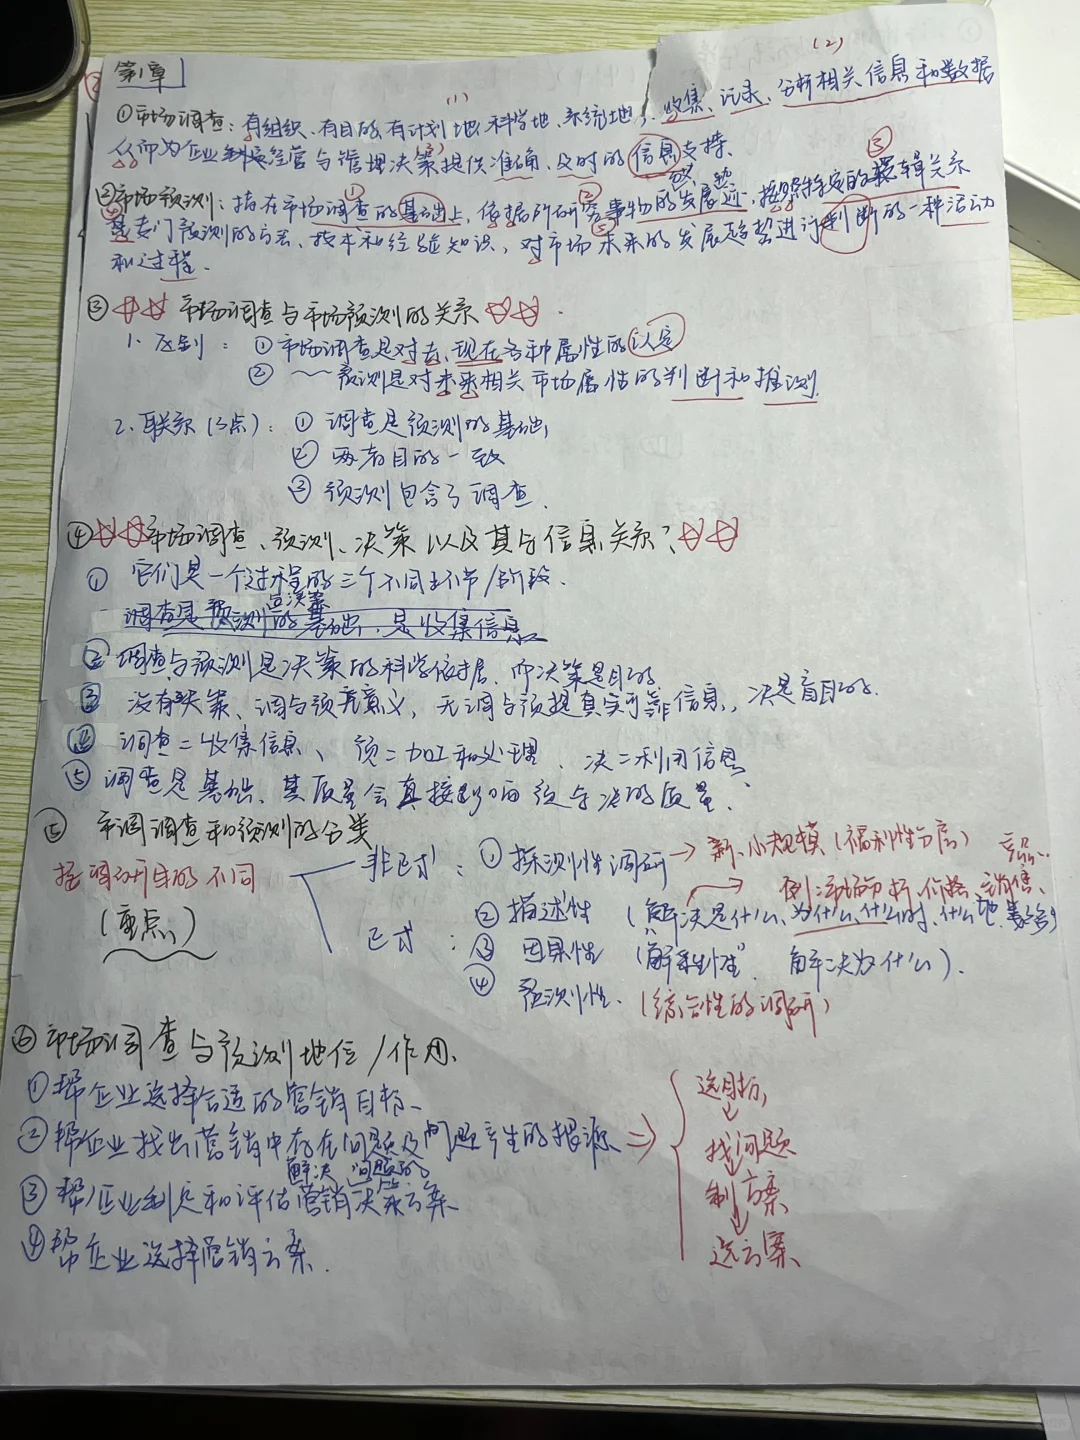 第1章
(1) (2)
①市场调查：有组织、有目的、有计划地、科学地、系统地、收集、记录、分析相关信息和数据
从而为企业制定经营与管理决策提供准确、及时的信息支持、
②市场预测：指在市场调查的基础上，依据所研究事物的发展 ，按照特定的逻辑关系
专门预测的方法、技术和经验知识，对市场未来的发展趋势进行判断的一种活动
和过程.
③ 市场调查与市场预测的关系
1. 区别：①市场调查是对去、现在各种属性的认定
② 〜预测是对未来相关市场属性的判断和推测.
2. 联系(3点)：① 调查是预测的基础,
② 两者目的一致
③ 预测包含了调查.
④市场调查、预测、决策以及其与信息关系?
① 它们是一个过程的三个不同环节/阶段.
调查是预测与决策的基础、是收集信息
② 调查与预测是决策的科学依据、而决策是目的
③ 没有决策、调与预无意义，无调与预提真实可靠信息，决是盲目的.
④ 调查=收集信息、预=加工和处理、决=利用信息
⑤ 调查是基础、其质量会直接影响预与决的质量.
⑤ 市调调查和预测的分类
按调研目的不同
(重点)
非正式：① 探测性调研→新、小规模(福利性分房)
例：市场分析、价格、销售、
② 描述性 (解决是什么、为什么、什么时、什么地、
正式：③ 因果性 (解释性、解决为什么).
④ 预测性. (综合性的调研)
⑥市场调查与预测地位/作用.
①帮企业选择合适的营销目标、
②帮企业找出营销中存在问题及问题产生的根源 ⇒
解决 问题的
③帮企业制定和评估营销决策方案
④帮企业选择营销方案.
选目标
↓
找问题
制方案
↓
选方案